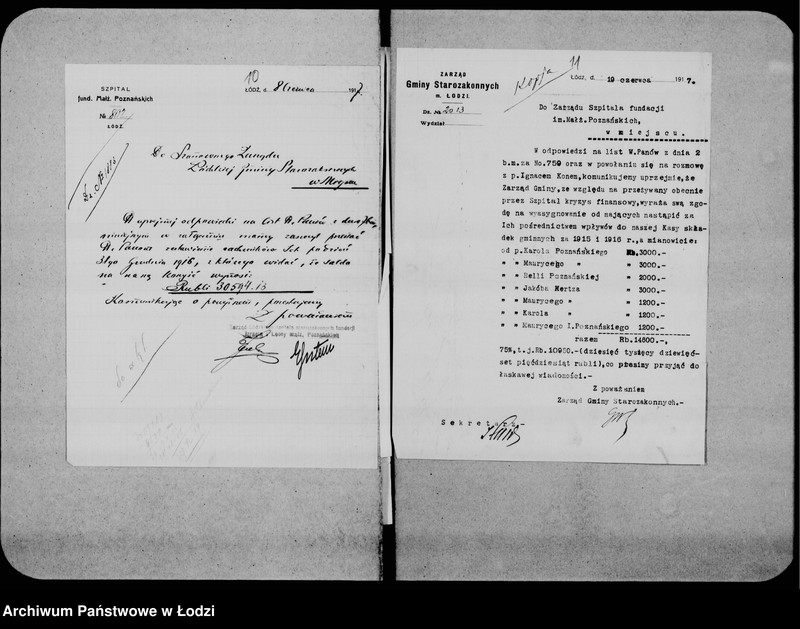 10
SZPITAL
fund. Małż. Poznańskich
ŁÓDŹ, d. 8 Czerwca 1917
№
ŁÓDŹ.
Do Szanownego Zarządu
Łódzkiej Gminy Starozakonnych
w Miejscu
W uprzejmej odpowiedzi na list W. Panów z dnia
W. Panom
31go Grudnia 1916, z którego widać, że saldo
na naszą korzyść wynosi:
Rubli 30594.13
Komunikując o powyższem, pozostajemy
Z poważaniem
11
Kopja
ZARZĄD
Gminy Starozakonnych
m. ŁODZI.
ŁÓDŹ, d. 19 czerwca 1917.
Dz. № 2013
Wydział
Do Zarządu Szpitala fundacji
im.Małż.Poznańskich,
w miejscu.
W odpowiedzi na list W.Panów z dnia 2
b.m.za No.759 oraz w powołaniu się na rozmowę
z p.Ignacem Konem,komunikujemy uprzejmie,że
Zarząd Gminy,ze względu na przeżywany obecnie
przez Szpital kryzys finansowy,wyraża swą zgo-
dę na wyasygnowanie od mających nastąpić za
Ich pośrednictwem wpływów do naszej Kasy skła-
dek gminnych za 1915 i 1916 r.,a mianowicie:
od p.Karola Poznańskiego Rb.3000.-
" " Maurycego " " 3000.-
" " Helli Poznańskiej " 2000.-
" " Jakóba Hertza " 3000.-
" " Maurycego " " 1200.-
" " Karola " " 1200.-
" " Maurycego I.Poznańskiego 1200.-
razem Rb.14600.-,
75%,t.j.Rb.10950.-(dziesięć tysięcy dziewięć-
set pięćdziesiąt rubli),co prosimy przyjąć do
łaskawej wiadomości.-
Z poważaniem
Zarząd Gminy Starozakonnych.-
Sekretarz.-
Archiwum Państwowe w Łodzi